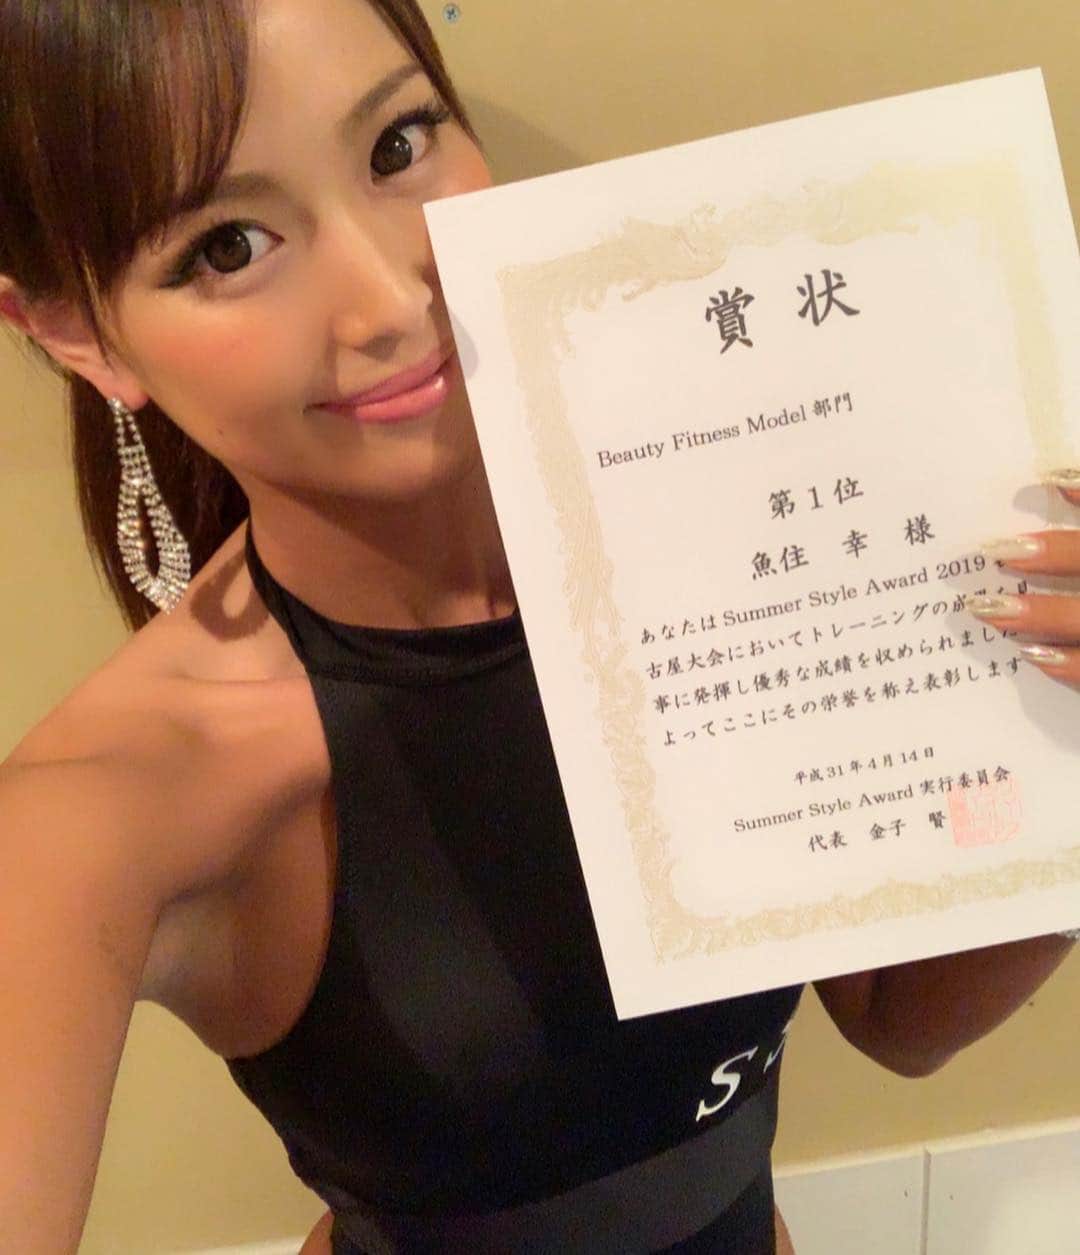 賞状
Beauty Fitness Model 部門
第1位
魚住 幸 様
あなたは Summer Style Award 2019
古屋大会においてトレーニングの成果を見
事に発揮し優秀な成績を収められました
よってここにその栄誉を称え表彰します
平成31年4月14日
Summer Style Award 実行委員会
代表 金子 賢
S